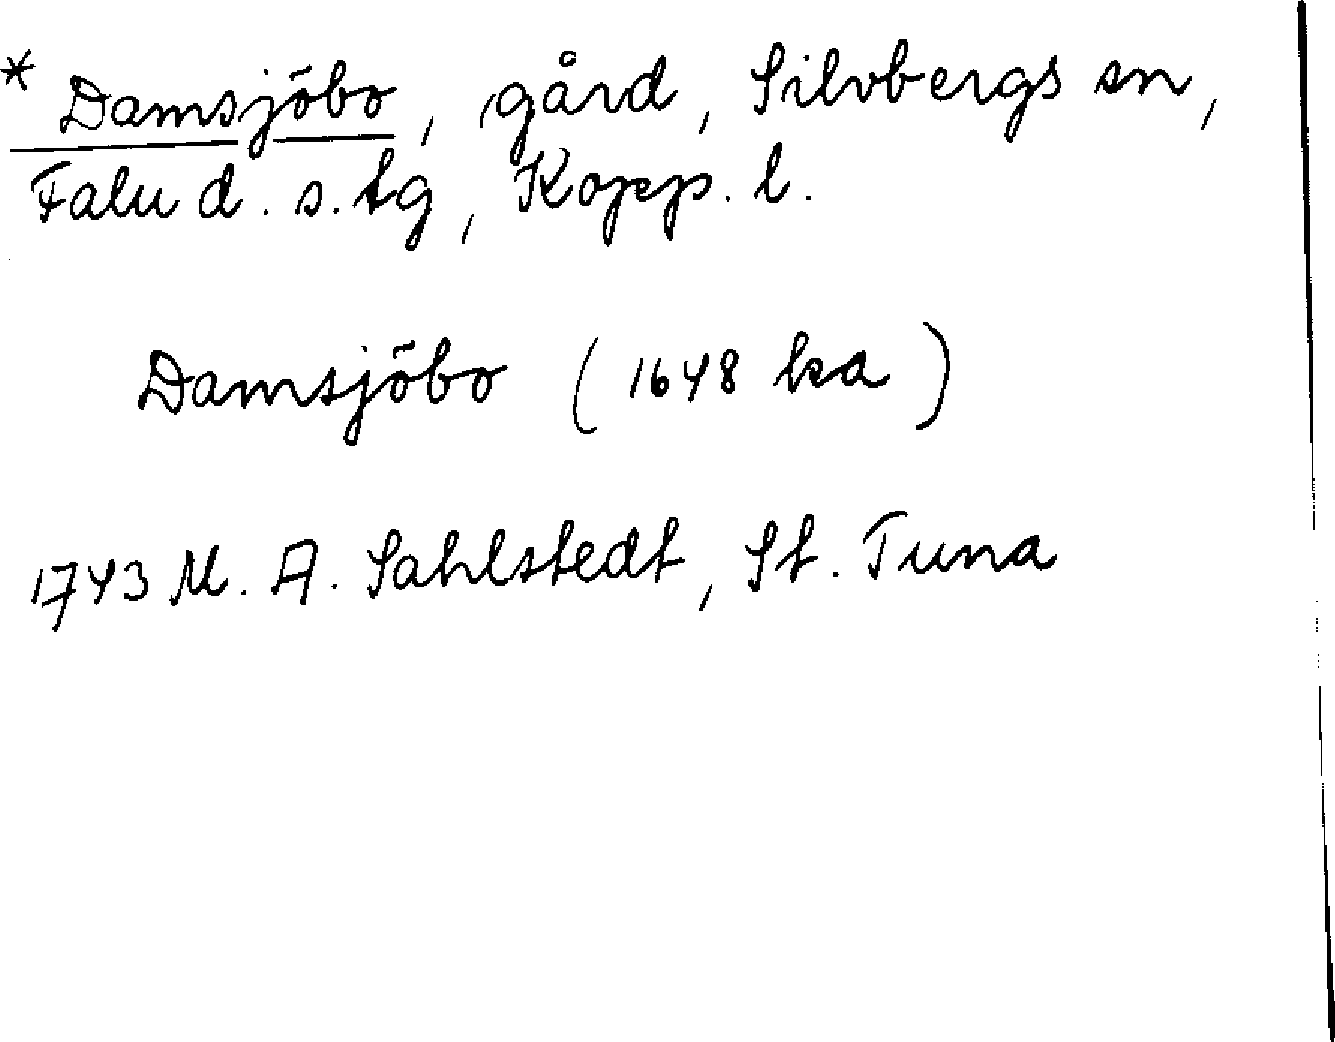 * Damsjöbo, gård, Silvbergs sn,
Falu d. s. tg, Kopp. l.
Damsjöbo (1648 ka)
1743 M. A. Sahlstedt, St. Tuna